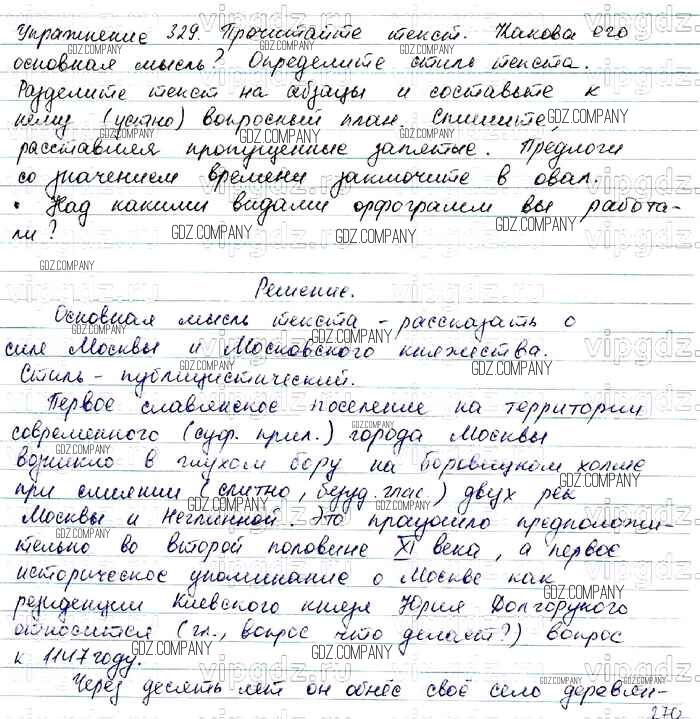 Упражнение 329. Прочитайте текст. Какова его
основная мысль? Определите стиль текста.
Разделите текст на абзацы и составьте к
нему (устно) вопросный план. Спишите,
расставляя пропущенные запятые. Предлоги
со значением времени заключите в овал.
• Над какими видами орфограмм вы работа-
ли?
Решение.
Основная мысль текста - рассказать о
силе Москвы и Московского княжества.
Стиль - публицистический.
Первое славянское поселение на территории
современного (суф. прил.) города Москвы
возникло в глухом бору на Боровицком холме
при слиянии (слитно, безуд. глас) двух рек
Москвы и Неглинной. Это произошло предположи-
тельно во второй половине XI века, а первое
историческое упоминание о Москве как
резиденции Киевского князя Юрия Долгорукого
относится (гл., вопрос что делает?) вопрос
к 1147 году.
Через десять лет он обнёс своё село деревян-
270